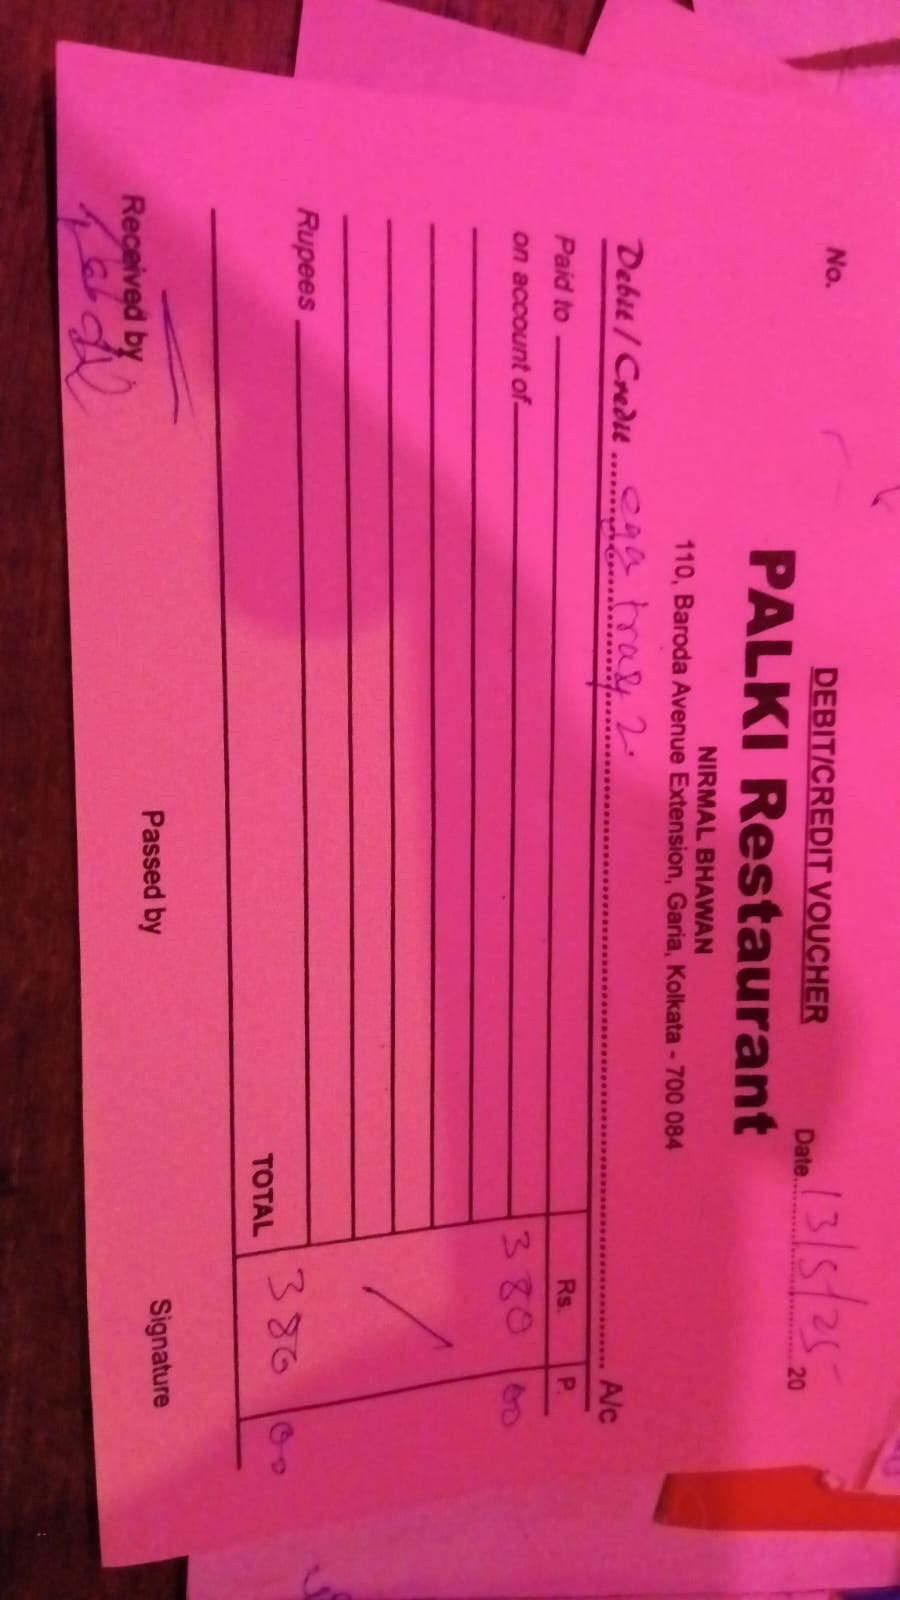 DEBIT/CREDIT VOUCHER
No.
Date 13/5/25 20
PALKI Restaurant
NIRMAL BHAWAN
110, Baroda Avenue Extension, Garia, Kolkata - 700 084
Debit / Credit egg tray 2 A/c
Paid to Rs. P.
on account of 380 00
Rupees
TOTAL 380 00
Received by Passed by Signature